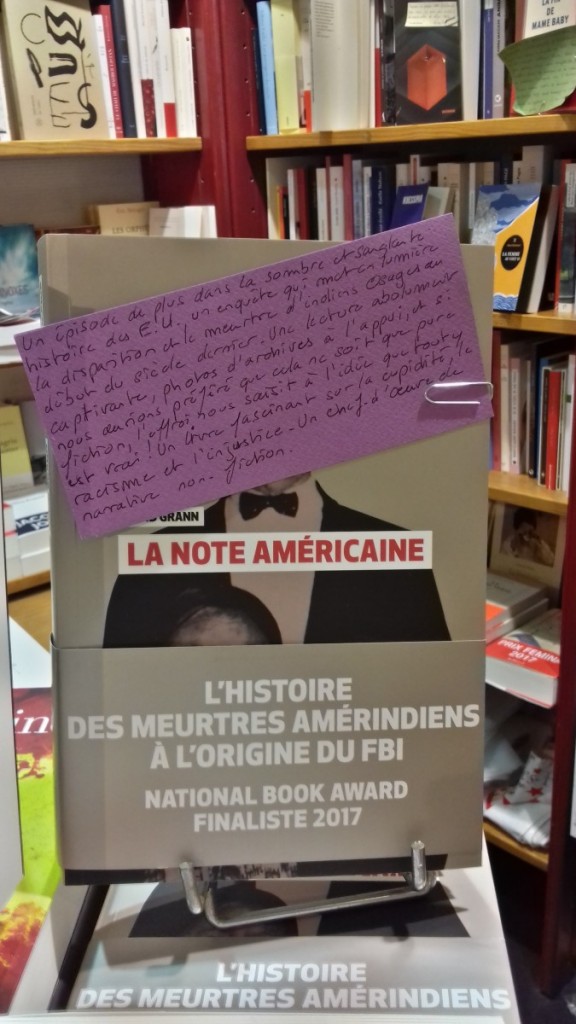 LA FIN
DE
MAME BABY
Un épisode de plus dans la sombre et sanglante
histoire des E.U, un enquête qui met en lumière
la disparition et le meurtre d'indiens Osages au
début du siècle dernier. Une lecture absolument
captivante, photos d'archives à l'appui, et si
nous aurions préféré que cela ne soit que pure
fiction, l'effroi nous saisit à l'idée que tout y
est vrai! Un livre fascinant sur la cupidité, le
racisme et l'injustice. Un chef-d'œuvre de
narrative non-fiction.
GRANN
LA NOTE AMÉRICAINE
L'HISTOIRE
DES MEURTRES AMÉRINDIENS
À L'ORIGINE DU FBI
NATIONAL BOOK AWARD
FINALISTE 2017
PRIX FEMINA
2017
L'HISTOIRE
DES MEURTRES AMÉRINDIENS